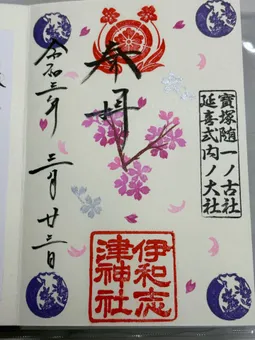 寶塚随一ノ古社
延喜式内ノ大社
奉拝
伊和志
津神社
令和三年 三月 廿三日